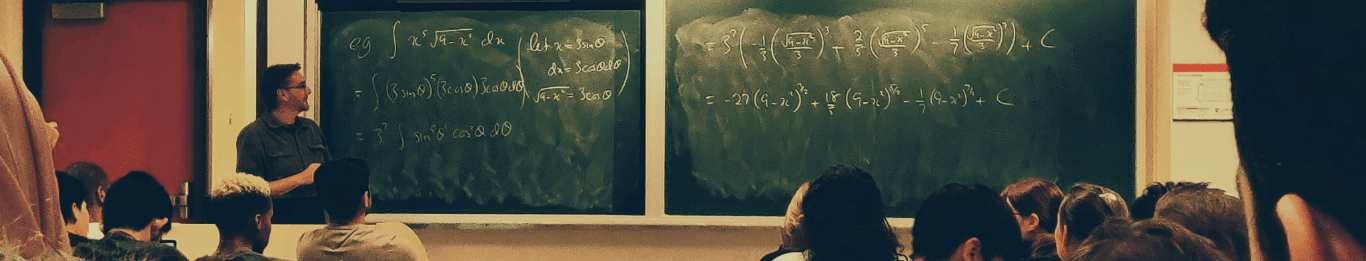 eg ∫ x⁵ √(9-x²) dx (let x = 3sinθ
dx = 3cosθdθ
√(9-x²) = 3cosθ)
= ∫ (3sinθ)⁵ (3cosθ) 3cosθdθ
= 3⁷ ∫ sin⁵θ cos²θ dθ
= 3⁷ ( -1/3 (√(9-x²)/3)³ + 2/5 (√(9-x²)/3)⁵ - 1/7 (√(9-x²)/3)⁷ ) + C
= -27 (9-x²)^(3/2) + 18/5 (9-x²)^(5/2) - 1/7 (9-x²)^(7/2) + C